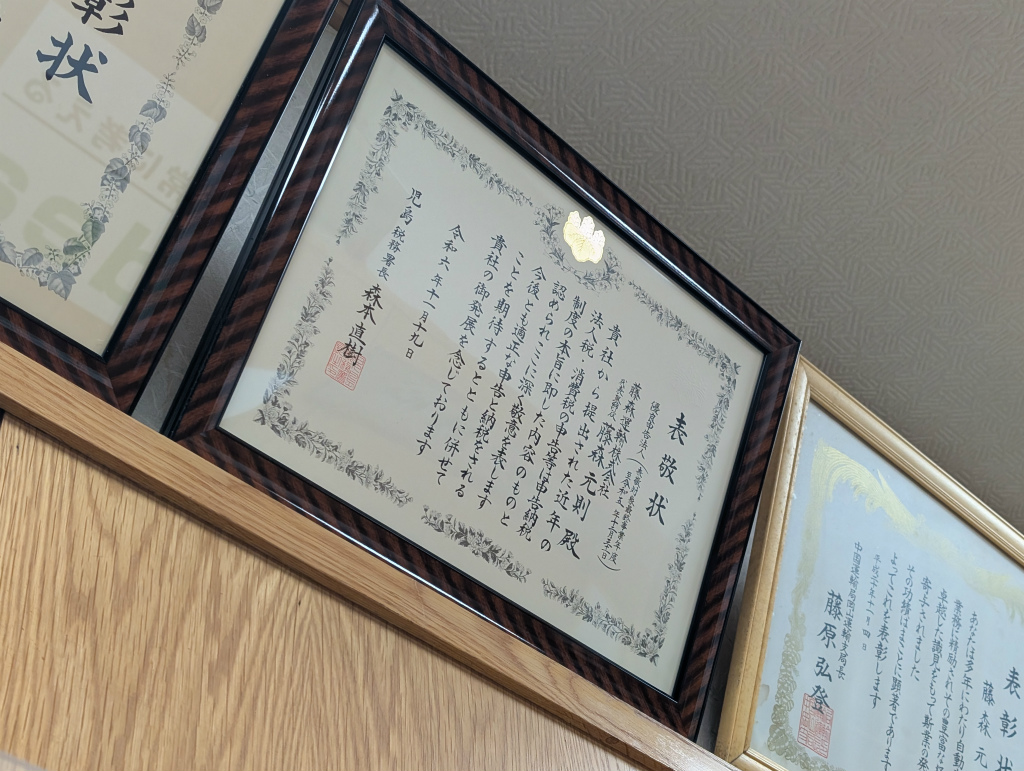 表敬状
優良申告法人
藤森運輸株式会社
藤森元則 殿
貴社から提出された近年の
法人税・消費税の申告等は申告納税
制度の本旨に即した内容のものと
認められここに深く敬意を表します
今後とも適正な申告と納税をされる
ことを期待するとともに併せて
貴社の御発展を念じております
令和六年十一月十九日
児島税務署長 森本直樹
表彰状
藤森元
あなたは多年にわたり自動
業務に精励されその豊富な
卓越した識見をもって斯業の発
寄与されました
その功績はまことに顕著であります
よってこれを表彰します
十一月四日
中国運輸局岡山運輸支局長
藤原弘登
彰状
常に考える